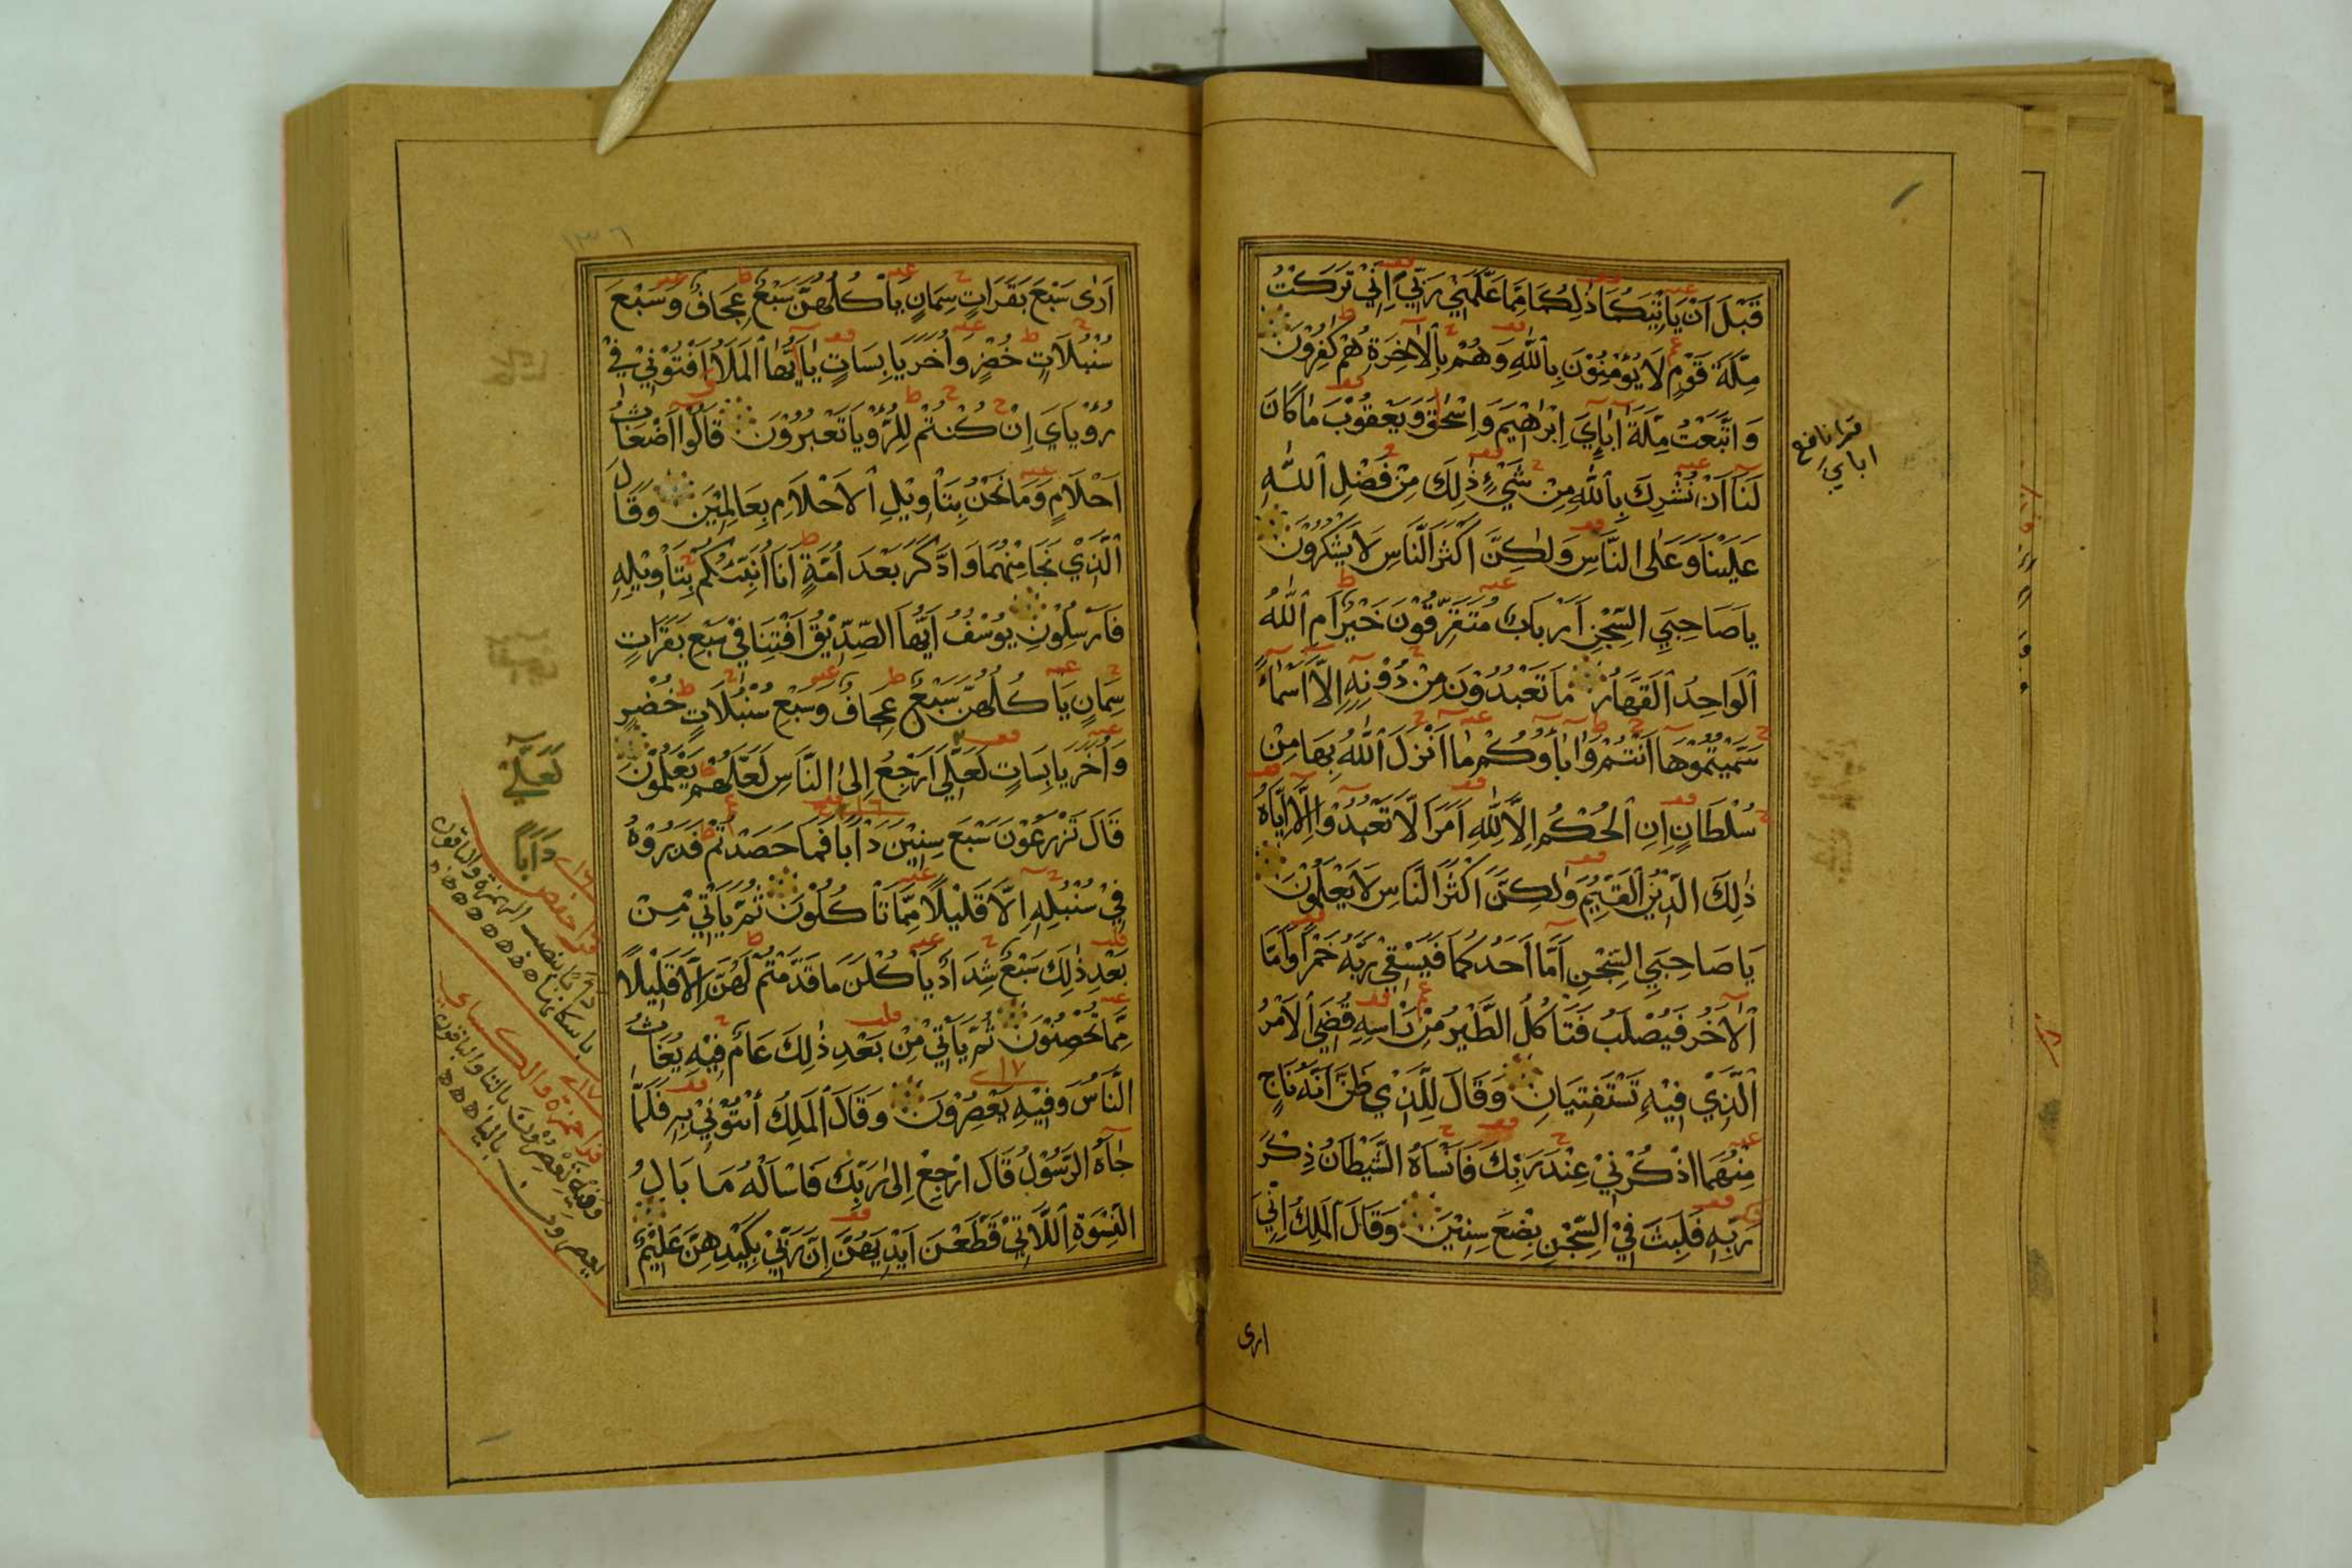 قَبْلَ اَنْ يَاْتِيَكُمَا ذٰلِكُمَا مِمَّا عَلَّمَنِيْ رَبِّيْ اِنِّيْ تَرَكْتُ
مِلَّةَ قَوْمٍ لَا يُؤْمِنُوْنَ بِاللّٰهِ وَهُمْ بِالْاٰخِرَةِ هُمْ كٰفِرُوْنَ
وَاتَّبَعْتُ مِلَّةَ اٰبَاءِيَ اِبْرٰهِيْمَ وَاِسْحٰقَ وَيَعْقُوْبَ مَا كَانَ
لَنَا اَنْ نُشْرِكَ بِاللّٰهِ مِنْ شَيْءٍ ذٰلِكَ مِنْ فَضْلِ اللّٰهِ
عَلَيْنَا وَعَلَى النَّاسِ وَلٰكِنَّ اَكْثَرَ النَّاسِ لَا يَشْكُرُوْنَ
يَا صَاحِبَيِ السِّجْنِ اَرْبَابٌ مُتَفَرِّقُوْنَ خَيْرٌ اَمِ اللّٰهُ
الْوَاحِدُ الْقَهَّارُ مَا تَعْبُدُوْنَ مِنْ دُوْنِهِ اِلَّا اَسْمَاءً
سَمَّيْتُمُوْهَا اَنْتُمْ وَاٰبَاؤُكُمْ مَا اَنْزَلَ اللّٰهُ بِهَا مِنْ
سُلْطَانٍ اِنِ الْحُكْمُ اِلَّا لِلّٰهِ اَمَرَ اَلَّا تَعْبُدُوْا اِلَّا اِيَّاهُ
ذٰلِكَ الدِّيْنُ الْقَيِّمُ وَلٰكِنَّ اَكْثَرَ النَّاسِ لَا يَعْلَمُوْنَ
يَا صَاحِبَيِ السِّجْنِ اَمَّا اَحَدُكُمَا فَيَسْقِيْ رَبَّهُ خَمْرًا وَاَمَّا
الْاٰخَرُ فَيُصْلَبُ فَتَاْكُلُ الطَّيْرُ مِنْ رَاْسِهِ قُضِيَ الْاَمْرُ
الَّذِيْ فِيْهِ تَسْتَفْتِيَانِ وَقَالَ لِلَّذِيْ ظَنَّ اَنَّهُ نَاجٍ
مِنْهُمَا اذْكُرْنِيْ عِنْدَ رَبِّكَ فَاَنْسَاهُ الشَّيْطَانُ ذِكْرَ
رَبِّهِ فَلَبِثَ فِي السِّجْنِ بِضْعَ سِنِيْنَ وَقَالَ الْمَلِكُ اِنِّيْ
ارى
قرا نافع
اباي
١٣٦
اَرٰى سَبْعَ بَقَرَاتٍ سِمَانٍ يَاْكُلُهُنَّ سَبْعٌ عِجَافٌ وَسَبْعَ
سُنْبُلَاتٍ خُضْرٍ وَاُخَرَ يَابِسَاتٍ يَا اَيُّهَا الْمَلَاُ اَفْتُوْنِيْ فِيْ
رُؤْيَايَ اِنْ كُنْتُمْ لِلرُّؤْيَا تَعْبُرُوْنَ قَالُوْا اَضْغَاثُ
اَحْلَامٍ وَمَا نَحْنُ بِتَاْوِيْلِ الْاَحْلَامِ بِعَالِمِيْنَ وَقَالَ
الَّذِيْ نَجَا مِنْهُمَا وَادَّكَرَ بَعْدَ اُمَّةٍ اَنَا اُنَبِّئُكُمْ بِتَاْوِيْلِهِ
فَاَرْسِلُوْنِ يُوْسُفُ اَيُّهَا الصِّدِّيْقُ اَفْتِنَا فِيْ سَبْعِ بَقَرَاتٍ
سِمَانٍ يَاْكُلُهُنَّ سَبْعٌ عِجَافٌ وَسَبْعِ سُنْبُلَاتٍ خُضْرٍ
وَاُخَرَ يَابِسَاتٍ لَعَلِّيْ اَرْجِعُ اِلَى النَّاسِ لَعَلَّهُمْ يَعْلَمُوْنَ
قَالَ تَزْرَعُوْنَ سَبْعَ سِنِيْنَ دَاَبًا فَمَا حَصَدْتُمْ فَذَرُوْهُ
فِيْ سُنْبُلِهِ اِلَّا قَلِيْلًا مِمَّا تَاْكُلُوْنَ ثُمَّ يَاْتِيْ مِنْ
بَعْدِ ذٰلِكَ سَبْعٌ شِدَادٌ يَاْكُلْنَ مَا قَدَّمْتُمْ لَهُنَّ اِلَّا قَلِيْلًا
مِمَّا تُحْصِنُوْنَ ثُمَّ يَاْتِيْ مِنْ بَعْدِ ذٰلِكَ عَامٌ فِيْهِ يُغَاثُ
النَّاسُ وَفِيْهِ يَعْصِرُوْنَ وَقَالَ الْمَلِكُ ائْتُوْنِيْ بِهِ فَلَمَّا
جَاءَهُ الرَّسُوْلُ قَالَ ارْجِعْ اِلٰى رَبِّكَ فَاسْاَلْهُ مَا بَالُ
النِّسْوَةِ اللَّاتِيْ قَطَّعْنَ اَيْدِيَهُنَّ اِنَّ رَبِّيْ بِكَيْدِهِنَّ عَلِيْمٌ
لَعَلِّيْ
دَاَبًا
قرا حفص
دابًا بنصب الهمزة والباقون
باسكانها
قرا حمزة والكسايي
وفيه تَعْصِرُوْنَ بالتا والباقون
يعصرون بالياء